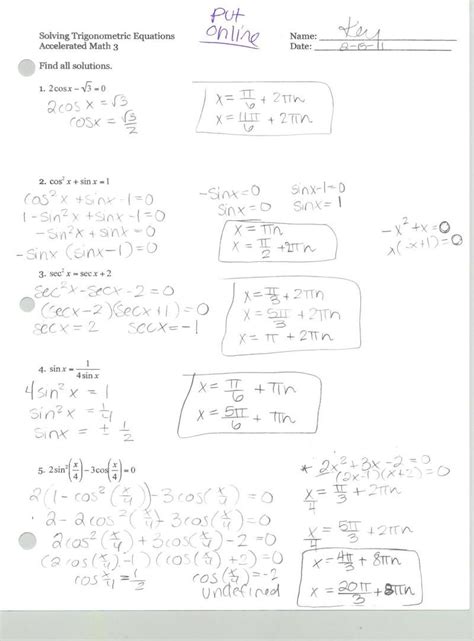 Put
online
Solving Trigonometric Equations
Accelerated Math 3
Name: Key
Date: 2-8-11
Find all solutions.
1. 2cosx – √3 = 0
2cos x = √3
cosx = √3/2
x = π/6 + 2πn
x = 11π/6 + 2πn
2. cos² x + sin x = 1
cos²x + sinx - 1 = 0
1 - sin²x + sinx - 1 = 0
-sin²x + sinx = 0
-sinx (sinx - 1) = 0
-sinx = 0
sinx = 0
sinx - 1 = 0
sinx = 1
x = πn
x = π/2 + 2πn
-x² + x = 0
x(-x+1) = 0
3. sec² x = sec x + 2
sec²x - secx - 2 = 0
(secx - 2)(secx + 1) = 0
secx = 2 secx = -1
x = π/3 + 2πn
x = 5π/3 + 2πn
x = π + 2πn
4. sin x = 1/(4 sin x)
4sin²x = 1
sin²x = 1/4
sinx = ± 1/2
x = π/6 + πn
x = 5π/6 + πn
5. 2sin²(x/4) – 3cos(x/4) = 0
2(1 - cos²(x/4)) - 3cos(x/4) = 0
2 - 2cos²(x/4) - 3cos(x/4) = 0
2cos²(x/4) + 3cos(x/4) - 2 = 0
(2cos(x/4) - 1)(cos(x/4) + 2) = 0
cos x/4 = 1/2
cos(x/4) = -2
undefined
* 2x² + 3x - 2 = 0
(2x-1)(x+2) = 0
x/4 = π/3 + 2πn
x/4 = 5π/3 + 2πn
x = 4π/3 + 8πn
x = 20π/3 + 8πn